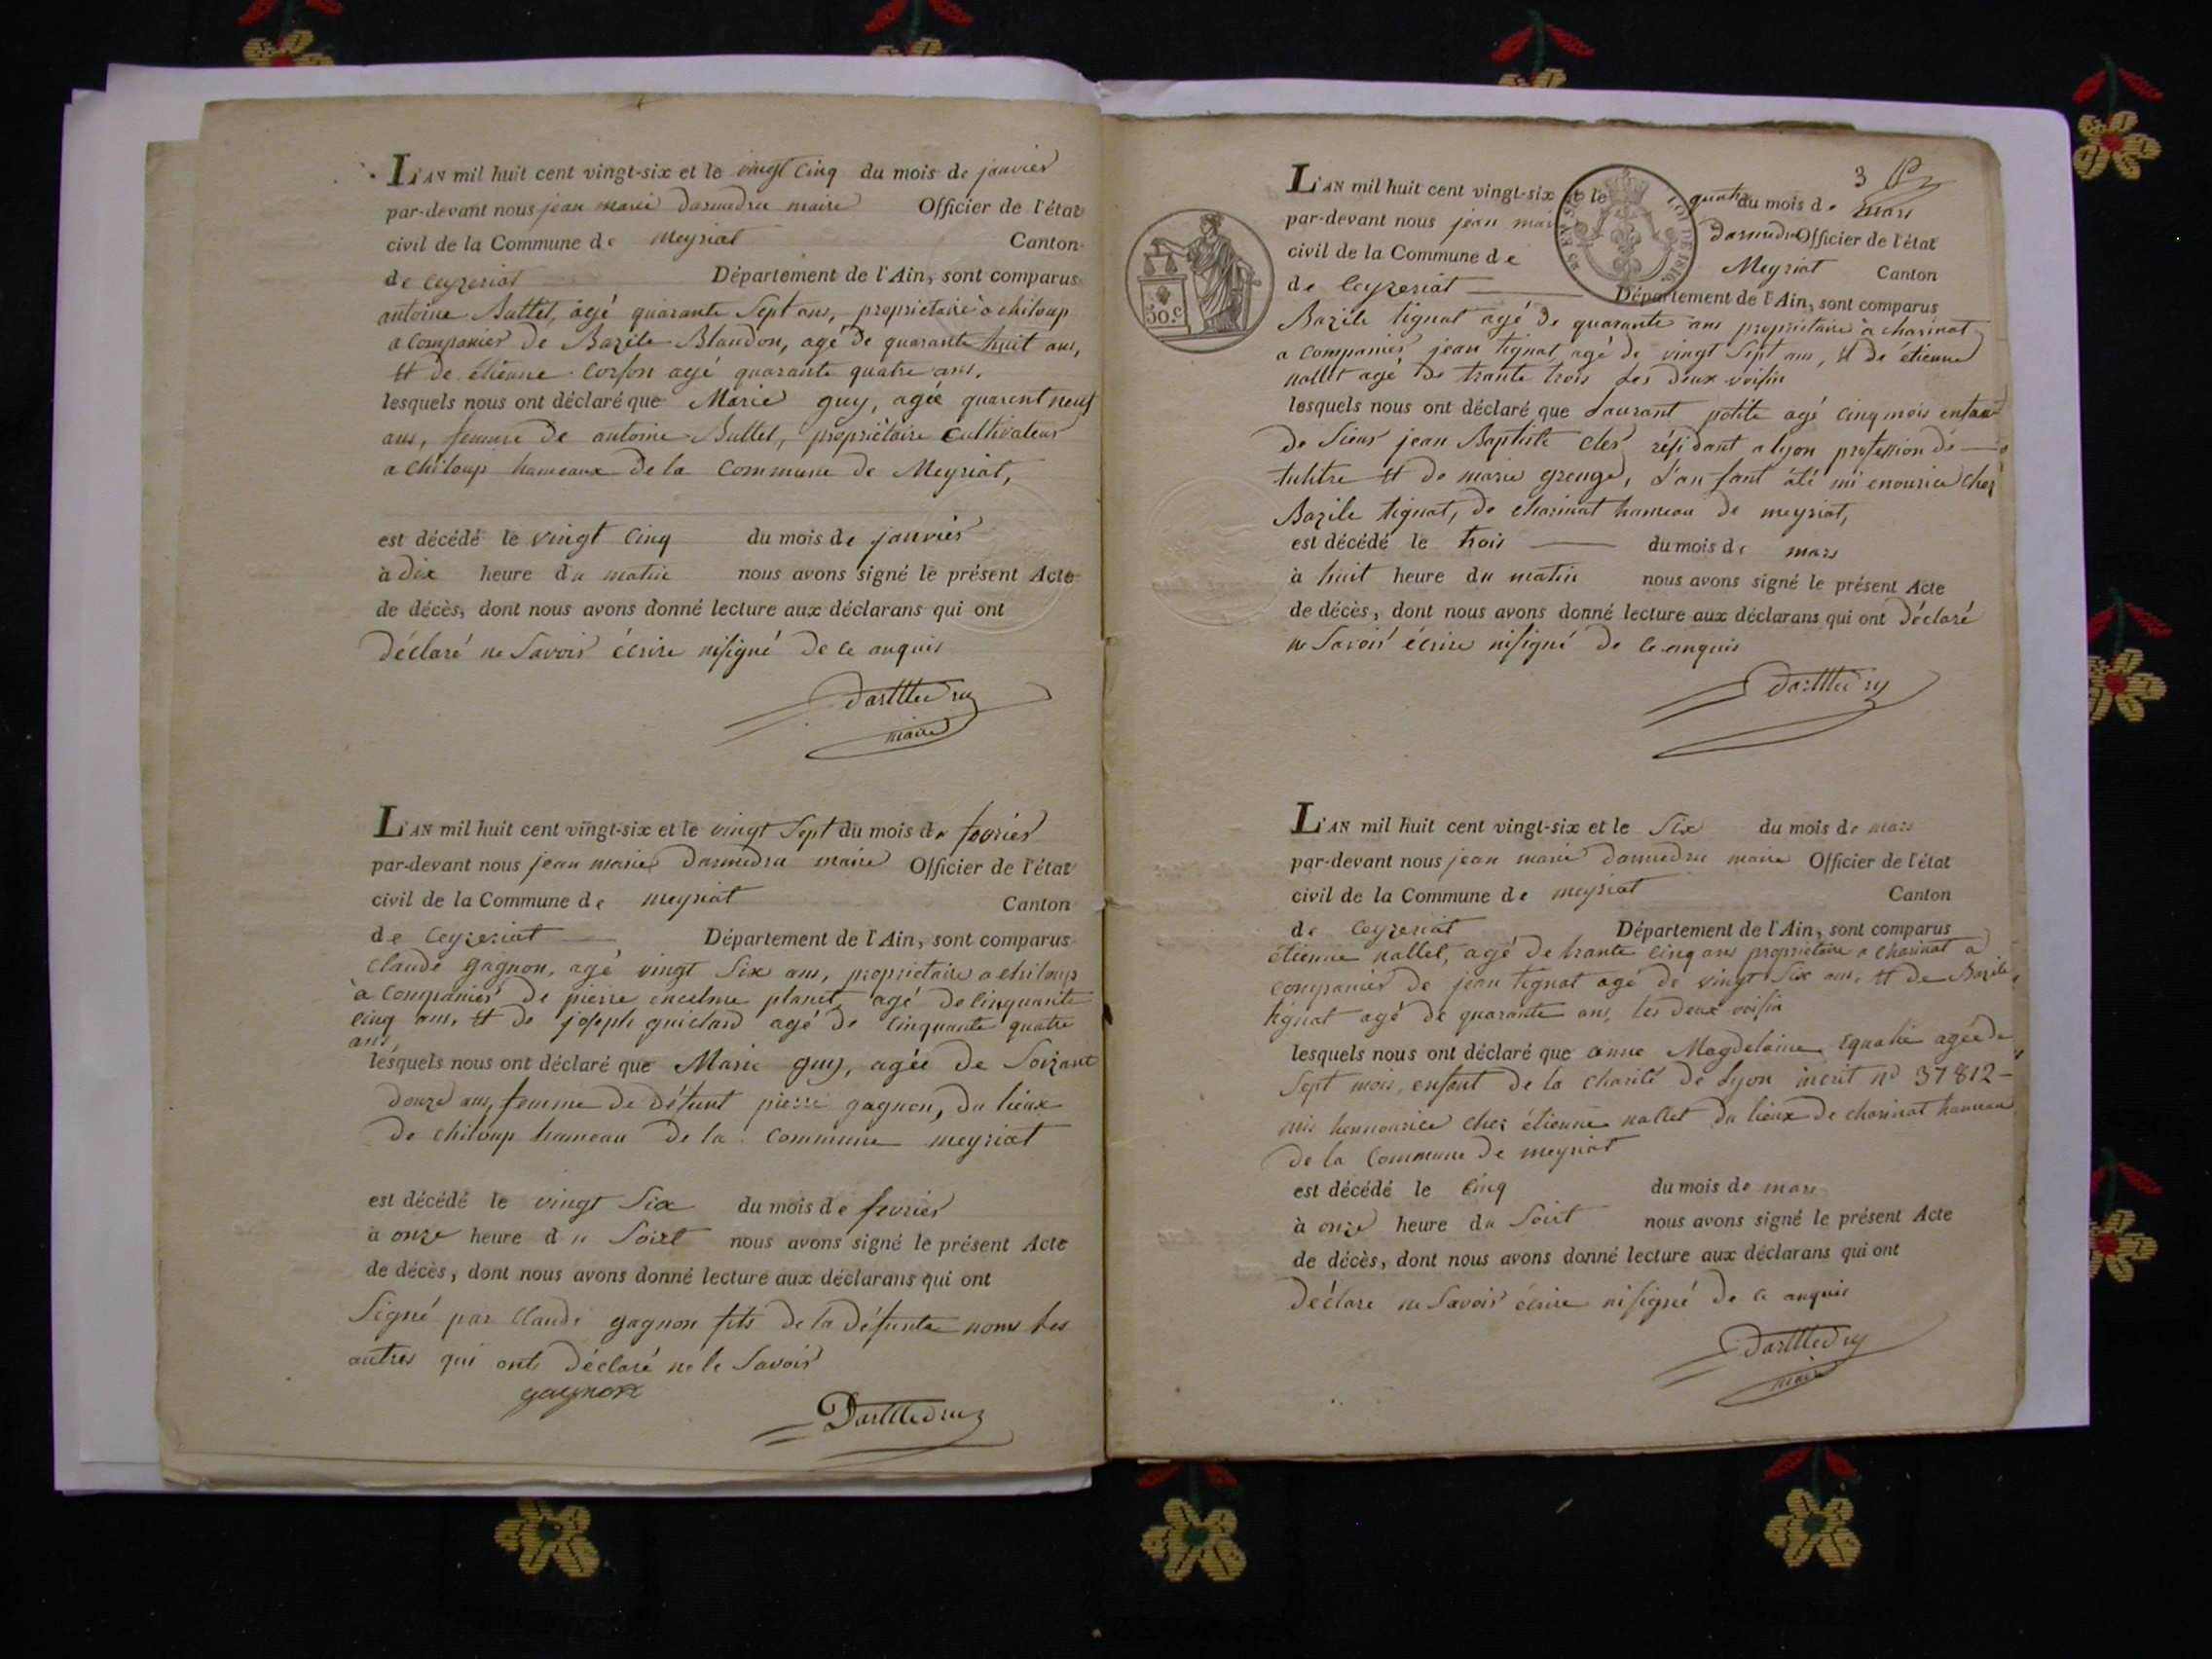 L'AN mil huit cent vingt-six et le vingt cinq du mois de janvier
par-devant nous jean marie darmedru maire Officier de l'état
civil de la Commune de meyriat Canton
de ceyzeriat Département de l'Ain, sont comparus
antoine Buttet, agé quarante Sept ans, proprietaire à chiloup
a companier de Bazile Blandon, agé de quarante huit ans,
et de étienne Corson agé quarante quatre ans,
lesquels nous ont déclaré que Marie guy, agée quarent neuf
ans, femme de antoine Buttet, propriètaire Cultivateur
a chiloup hameaux de la Commune de Meyriat,
est décédé le vingt Cinq du mois de janvier
à dix heure du matin nous avons signé le présent Acte
de décès, dont nous avons donné lecture aux déclarans qui ont
déclaré ne Savoir écrire ni signé de ce anquis
Darmedru
maire
L'AN mil huit cent vingt-six et le vingt Sept du mois de fevrier
par-devant nous jean marie darmedru maire Officier de l'état
civil de la Commune de meyriat Canton
de ceyzeriat Département de l'Ain, sont comparus
Claude gagnon, agé vingt Six ans, proprietaire a chiloup
à companier de pierre planet, agé de cinquante
cinq ans, et de joseph guichard agé de cinquante quatre
ans,
lesquels nous ont déclaré que Marie guy, agée de Soixant
douze ans, femme de défunt pierre gagnon, du lieux
de chiloup hameau de la Commune meyriat
est décédé le vingt Six du mois de fevrier
à onze heure du Soirt nous avons signé le présent Acte
de décès, dont nous avons donné lecture aux déclarans qui ont
Signé par Claude gagnon fils de la défunte nom les
autres qui onts déclaré ne le Savoir
gagnon
Darmedru
3
L'AN mil huit cent vingt-six et le quatre du mois de mars
par-devant nous jean mari darmedru Officier de l'état
civil de la Commune de Meyriat Canton
de Ceyzeriat Département de l'Ain, sont comparus
EN SUS LOI DE 1816.
50.C
Bazile tignat agé de quarante ans proprietaire à charinat
a companier jean tignat agé de vingt Sept ans, et de étienne
nallet agé de trante trois les deux voisin
lesquels nous ont déclaré que Laurant potite agé cinq mois enfant
de Sieur jean Baptiste Cler résidant a lyon profession de
et de marie grenge, l'an fant été mi enourice chez
Bazile tignat, de charinat hameau de meyriat,
est décédé le trois du mois de mars
à huit heure du matin nous avons signé le présent Acte
de décès, dont nous avons donné lecture aux déclarans qui ont déclaré
ne Savoir écrire ni signé de ce anquis
Darmedru
L'AN mil huit cent vingt-six et le Six du mois de mars
par-devant nous jean marie darmedru maire Officier de l'état
civil de la Commune de meyriat Canton
de ceyzeriat Département de l'Ain, sont comparus
étienne nallet, agé de trante cinq ans proprietaire a charinat a
companier de jean tignat agé de vingt Six ans, et de Bazile
tignat agé de quarante ans, les deux voisin
lesquels nous ont déclaré que anne Magdelaine agée de
Sept mois, enfant de la charité de Lyon incrit nº 37812
mis hennourice chez étienne nallet du lieux de charinat hameau
de la Commune de meyriat
est décédé le cinq du mois de mars
à onze heure du Soirt nous avons signé le présent Acte
de décès, dont nous avons donné lecture aux déclarans qui ont
déclare ne Savoir écrire ni signé de ce anquis
Darmedru
maire